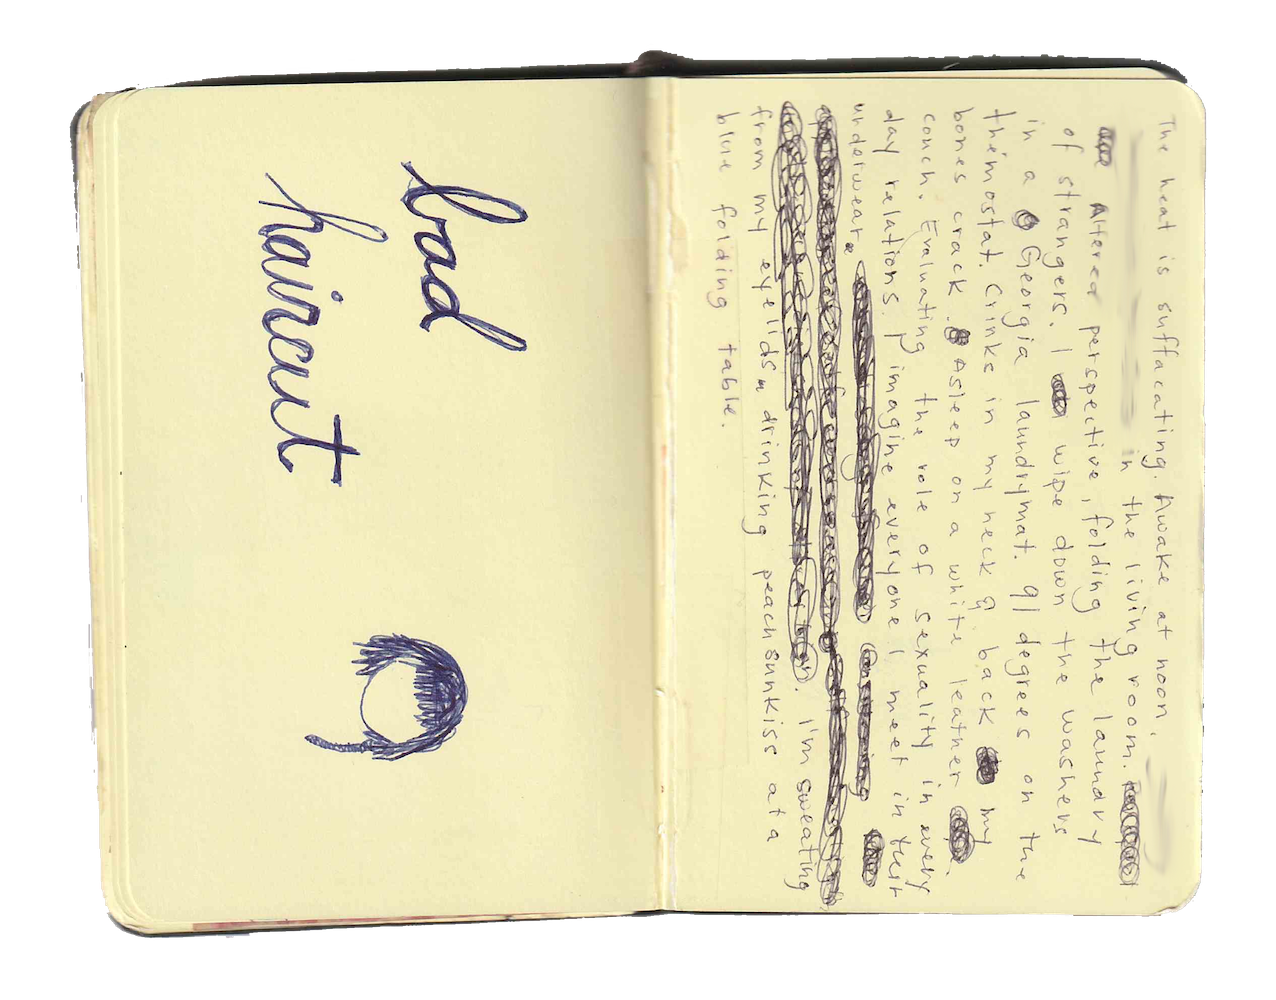 The heat is suffacating. Awake at noon,
in the living room.
Altered perspective, folding the laundry
of strangers. I wipe down the washers
in a Georgia laundrymat. 91 degrees on the
themostat. Crinks in my neck & back my
bones crack. Asleep on a white leather
couch. Evaluating the role of sexuality in every
day relations. I imagine everyone I meet in their
underwear.
I'm sweating
from my eyelids, drinking peach sunkiss at a
blue folding table.
bad
haircut